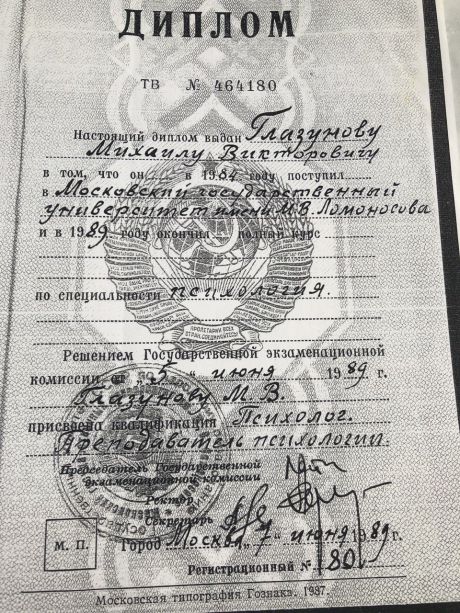 ДИПЛОМ
ТВ № 464180
Настоящий диплом выдан Глазунову
Михаилу Викторовичу
в том, что он в 1984 году поступил
в Московский государственный
университет имени М.В. Ломоносова
и в 1989 году окончил полный курс
ПРОЛЕТАРИИ ВСЕХ СТРАН, СОЕДИНЯЙТЕСЬ!
по специальности психология.
Решением Государственной экзаменационной
комиссии от „5" июня 1989 г.
Глазунову М. В.
присвоена квалификация Психолог.
Преподаватель психологии.
Председатель Государственной
экзаменационной комиссии
Ректор
Секретарь
М. П. Город Москва „7" июня 1989 г.
Регистрационный № 80
Московская типография Гознака. 1987.